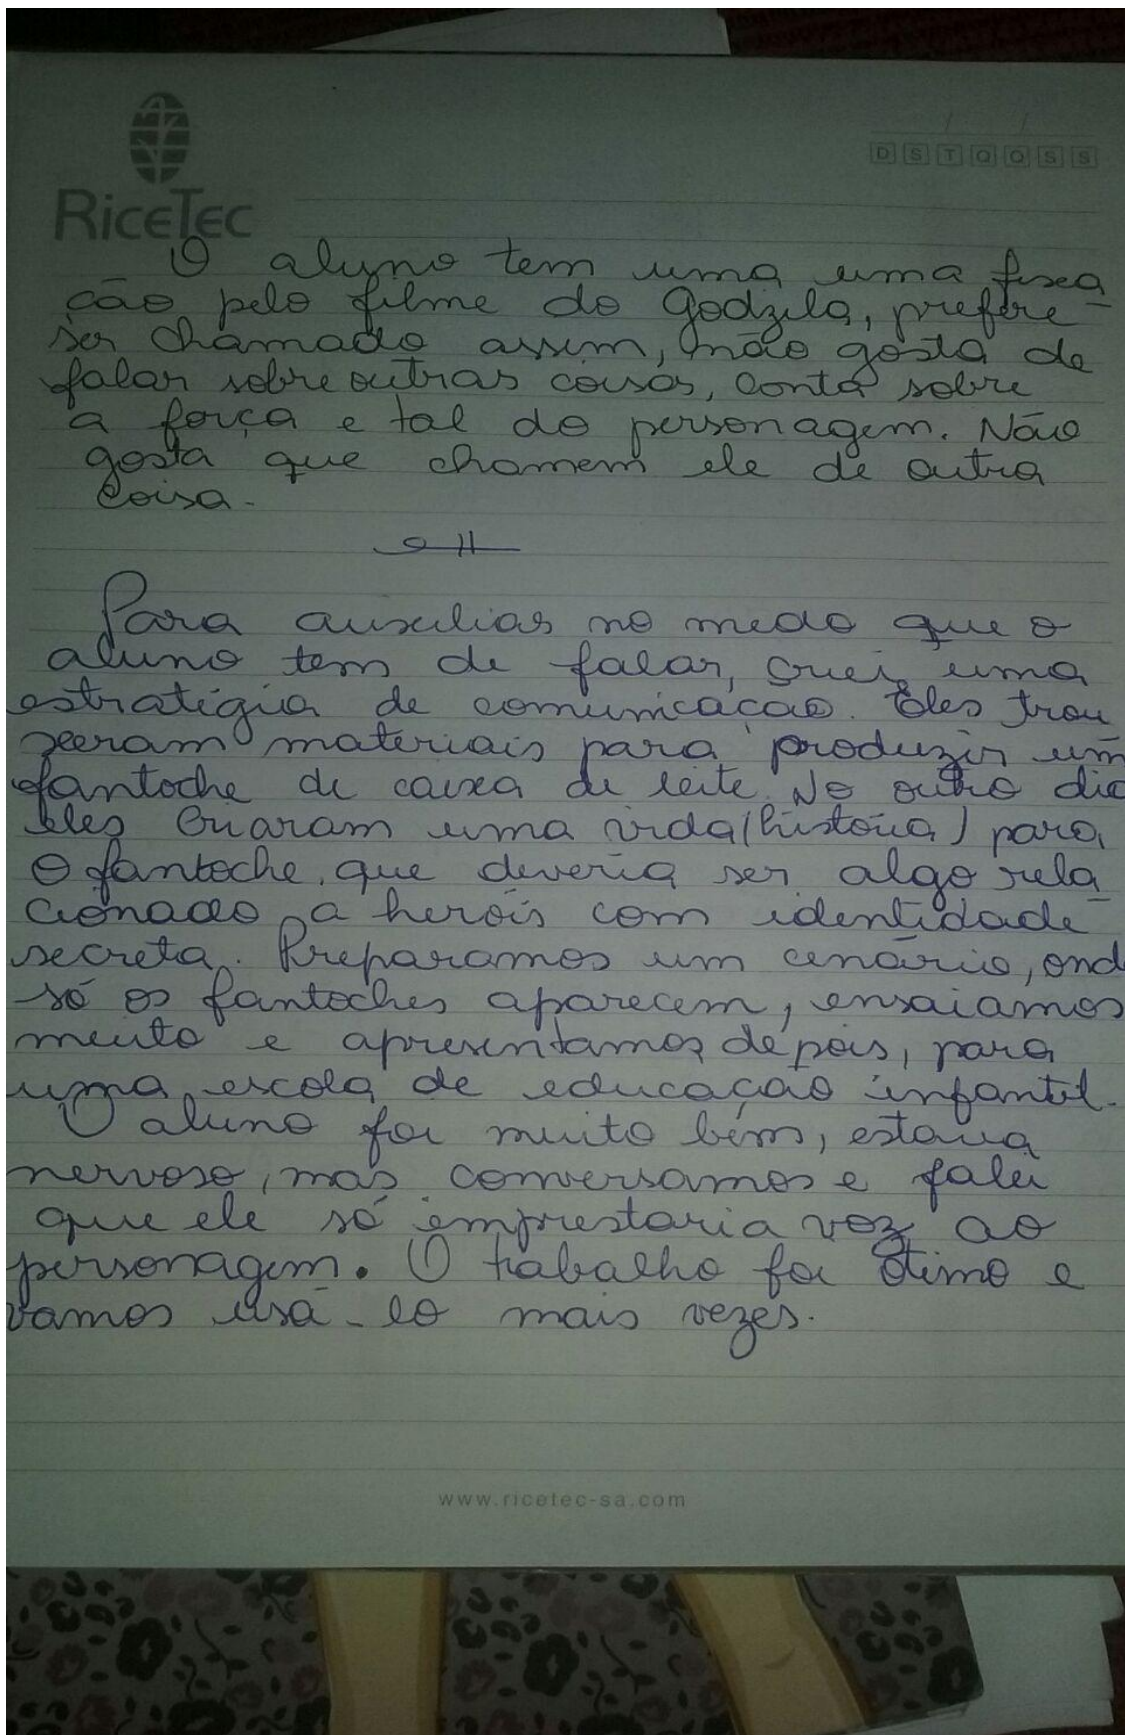 D S T Q Q S S
RiceTec
O aluno tem uma uma fixa
ção pelo filme do Godzila, prefere
ser chamado assim, não gosta de
falar sobre outras coisas, conta sobre
a força e tal do personagem. Não
gosta que chamem ele de outra
coisa.
Para auxiliar no medo que o
aluno tem de falar, criei uma
estratégia de comunicação. Eles trou
xeram materiais para produzir um
fantoche de caixa de leite. No outro dia
eles criaram uma vida (história) para
o fantoche, que deveria ser algo rela-
cionado a heróis com identidade
secreta. Preparamos um cenário, ond
só os fantoches aparecem, ensaiamos
muito e apresentamos depois, para
uma escola de educação infantil.
O aluno foi muito bem, estava
nervoso, mas conversamos e falei
que ele só emprestaria voz ao
personagem. O trabalho foi ótimo e
vamos usá-lo mais vezes.
www.ricetec-sa.com